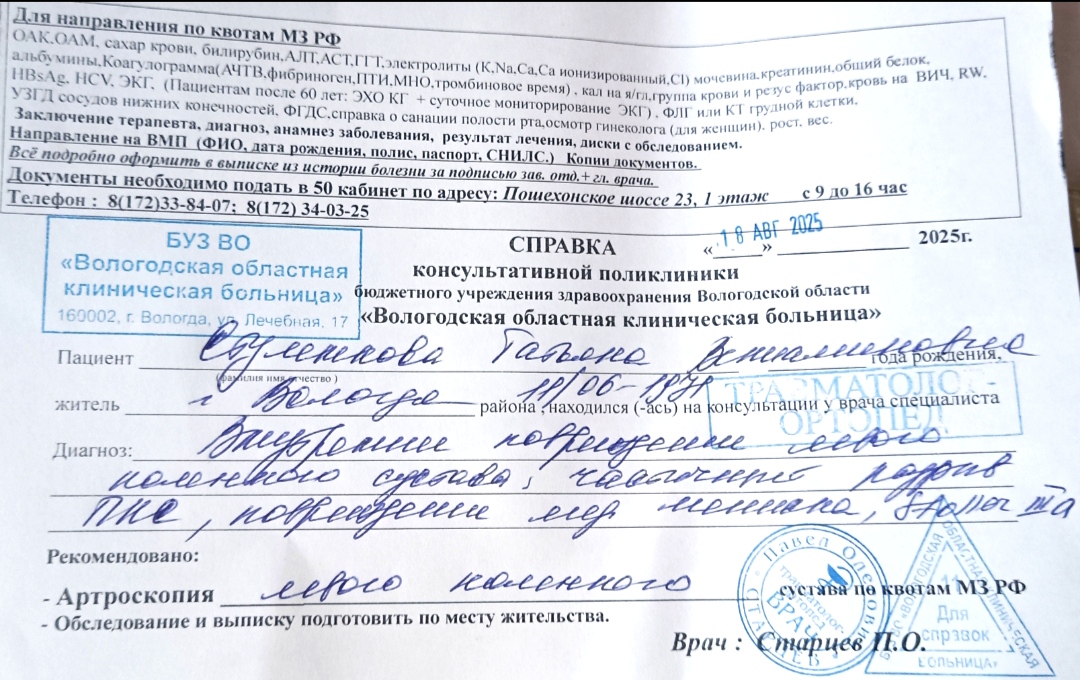 Для направления по квотам МЗ РФ
ОАК,ОАМ, сахар крови, билирубин,АЛТ,АСТ,ГГТ,электролиты (K,Na,Ca,Ca ионизированный,Cl) мочевина,креатинин,общий белок,
альбумины,Коагулограмма(АЧТВ,фибриноген,ПТИ,МНО,тромбиновое время) , кал на я/гл,группа крови и резус фактор,кровь на ВИЧ, RW,
HBsAg, HCV, ЭКГ, (Пациентам после 60 лет: ЭХО КГ + суточное мониторирование ЭКГ) , ФЛГ или КТ грудной клетки,
УЗГД сосудов нижних конечностей, ФГДС,справка о санации полости рта,осмотр гинеколога (для женщин). рост, вес.
Заключение терапевта, диагноз, анамнез заболевания, результат лечения, диски с обследованием.
Направление на ВМП (ФИО, дата рождения, полис, паспорт, СНИЛС.) Копии документов.
Всё подробно оформить в выписке из истории болезни за подписью зав. отд.+ гл. врача.
Документы необходимо подать в 50 кабинет по адресу: Пошехонское шоссе 23, 1 этаж с 9 до 16 час
Телефон : 8(172)33-84-07; 8(172) 34-03-25
БУЗ ВО
«Вологодская областная
клиническая больница»
160002, г. Вологда, ул. Лечебная, 17
СПРАВКА « 18 АВГ 2025 » 2025г.
консультативной поликлиники
бюджетного учреждения здравоохранения Вологодской области
«Вологодская областная клиническая больница»
Пациент Татьяна Вениаминовна года рождения,
(фамилия имя отчество )
житель г Вологда 11/06-1971 района , находился (-ась) на консультации у врача специалиста
ТРАВМАТОЛОГ-
ОРТОПЕД
Диагноз: Внутреннии повреждении левого
коленного сустава, частичный разрыв
ПКС, повреждении мед мениска, Stoller IIIа
Рекомендовано:
- Артроскопия левого коленного сустава по квотам МЗ РФ
- Обследование и выписку подготовить по месту жительства.
Врач : Старцев П.О.
Павел Олегович СТАРЦЕВ
травматолог-
ортопед
ВРАЧ
БУЗ ВО «ВОЛОГОДСКАЯ ОБЛАСТНАЯ КЛИНИЧЕСКАЯ БОЛЬНИЦА»
Для
справок